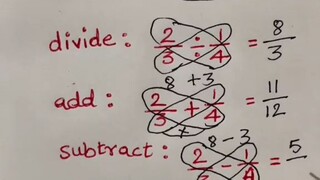 divide : 2/3 ÷ 1/4 = 8/3
8 + 3
add : 2/3 + 1/4 = 11/12
×
8 - 3
subtract : 2/3 - 1/4 = 5/